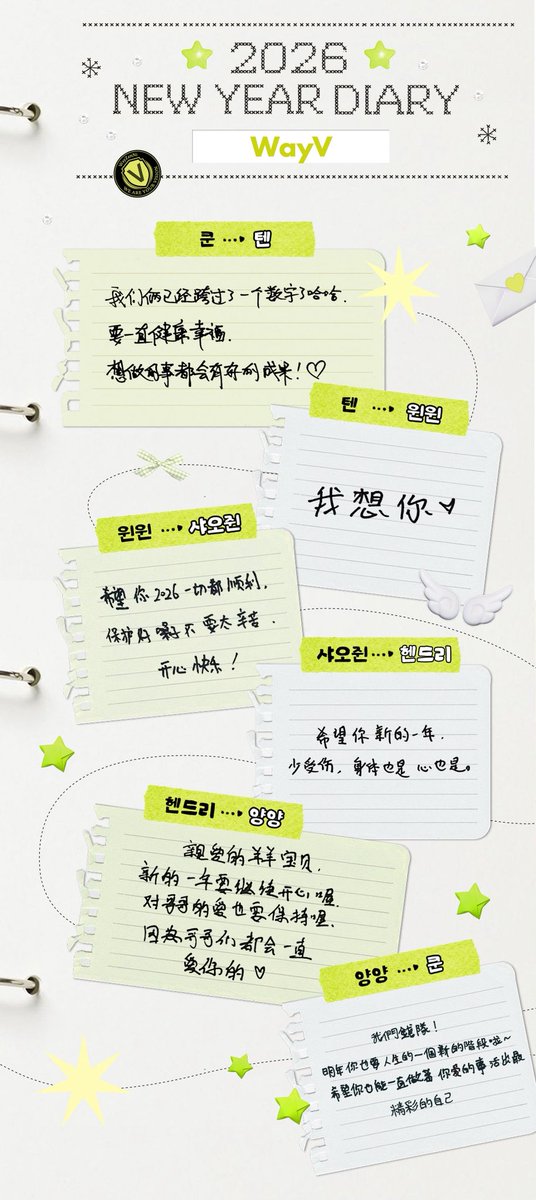 2026
NEW YEAR DIARY
WayV
V
쿤 ····▸ 텐
我们俩已经跨过了一个数字了哈哈.
要一直健康幸福.
想做的事都会有好的成果！♡
텐 ····▸ 윈윈
我想你
윈윈 ····▸ 샤오쥔
希望你2026一切都顺利,
保护好嗓子不要太辛苦.
开心快乐！
샤오쥔····▸ 헨드리
希望你新的一年.
少受伤，身体也是 心也是。
헨드리 ····▸ 양양
親愛的羊羊宝贝.
新的一年要继续开心喔.
对哥哥的爱也要保持喔.
因為哥哥们都会一直
爱你的♡
양양 ····▸ 쿤
我們錕隊！
明年你也要人生的一個新的階段啦~
希望你也能一直做著你愛的事活出最
精彩的自己